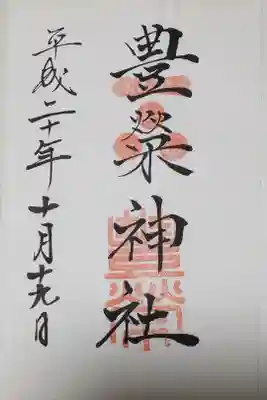 豊榮神社
平成二十年十月十九日